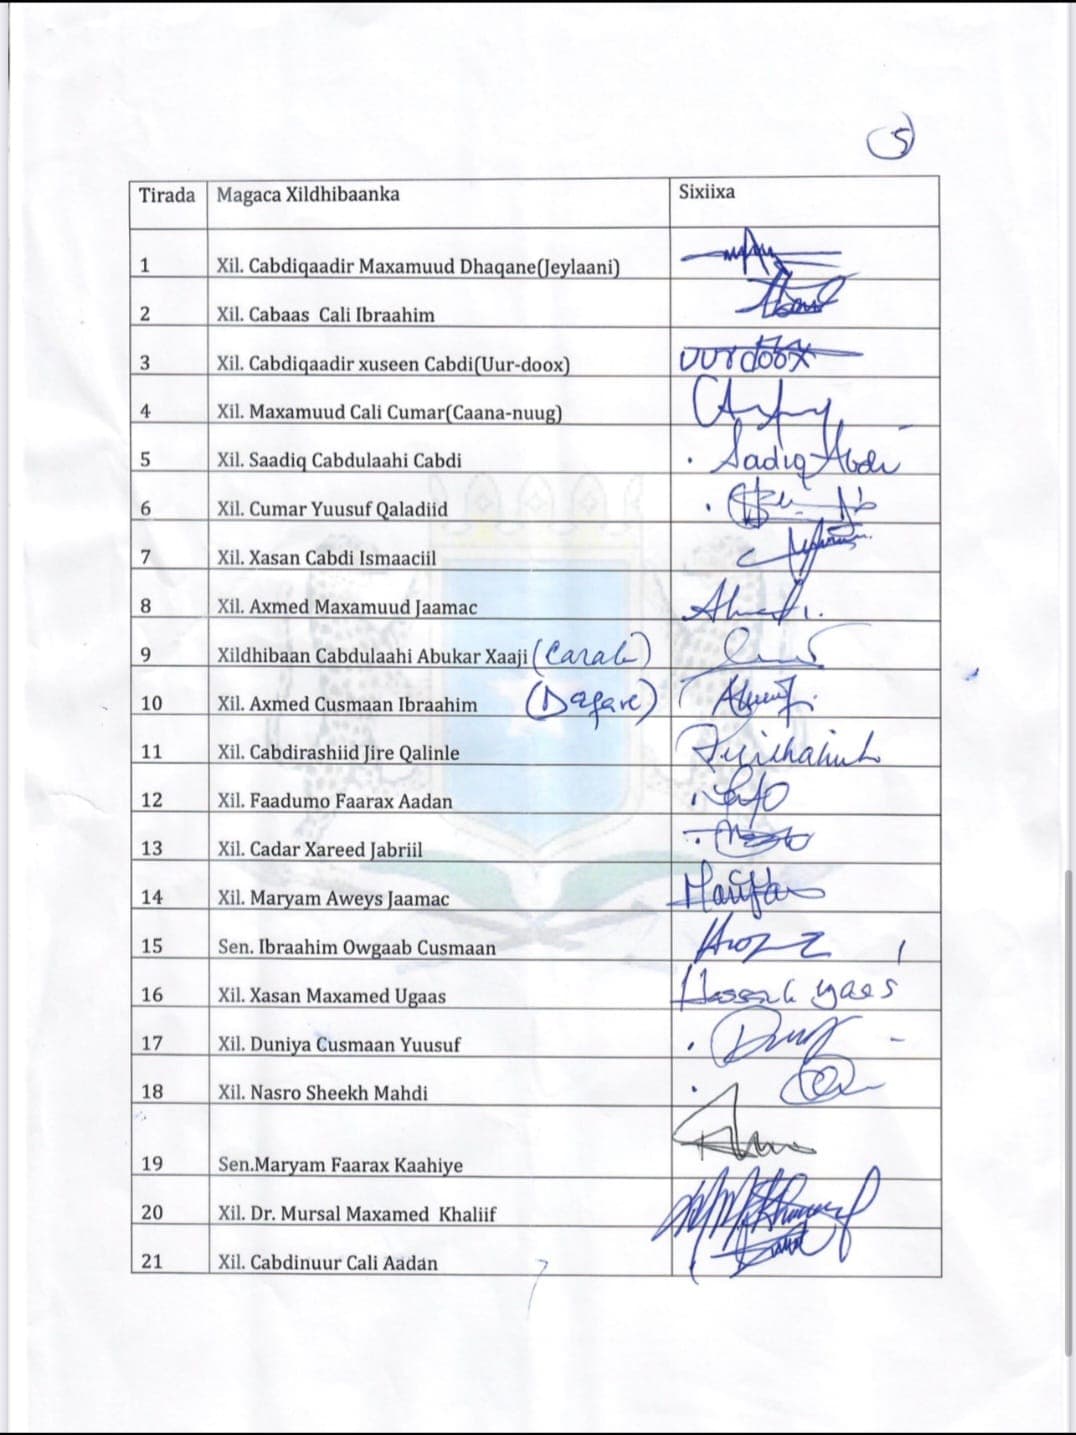 5
Tirada Magaca Xildhibaanka Sixiixa
1 Xil. Cabdiqaadir Maxamuud Dhaqane(Jeylaani)
2 Xil. Cabaas Cali Ibraahim
3 Xil. Cabdiqaadir xuseen Cabdi(Uur-doox) uurdoox
4 Xil. Maxamuud Cali Cumar(Caana-nuug)
5 Xil. Saadiq Cabdulaahi Cabdi Sadiq Abdi
6 Xil. Cumar Yuusuf Qaladiid
7 Xil. Xasan Cabdi Ismaaciil
8 Xil. Axmed Maxamuud Jaamac
9 Xildhibaan Cabdulaahi Abukar Xaaji (Carab)
10 Xil. Axmed Cusmaan Ibraahim (Dagare)
11 Xil. Cabdirashiid Jire Qalinle
12 Xil. Faadumo Faarax Aadan
13 Xil. Cadar Xareed Jabriil
14 Xil. Maryam Aweys Jaamac
15 Sen. Ibraahim Owgaab Cusmaan
16 Xil. Xasan Maxamed Ugaas
17 Xil. Duniya Cusmaan Yuusuf
18 Xil. Nasro Sheekh Mahdi
19 Sen.Maryam Faarax Kaahiye
20 Xil. Dr. Mursal Maxamed Khaliif
21 Xil. Cabdinuur Cali Aadan